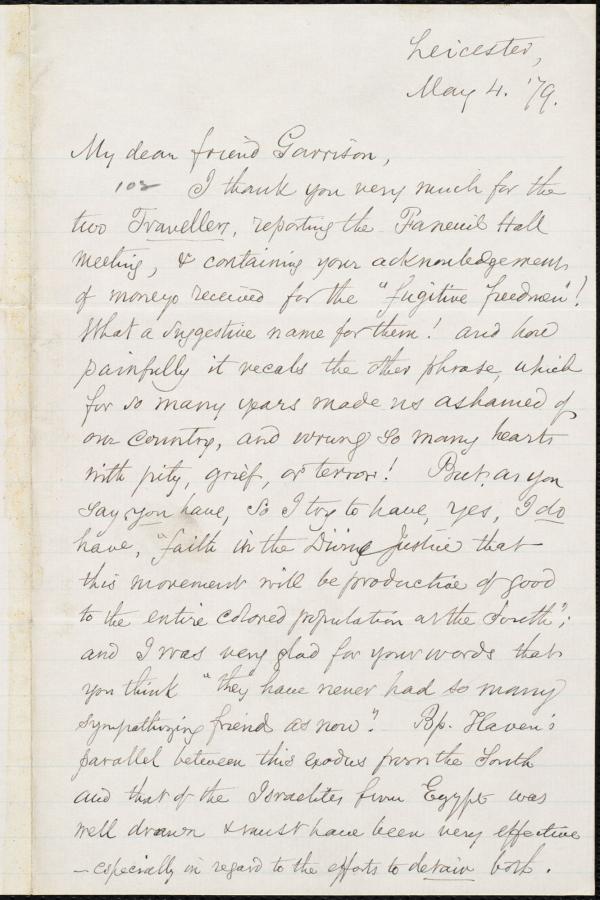 Leicester,
May 4. '79.
My dear friend Garrison,
I thank you very much for the
two Travellers, reporting the Faneuil Hall
meeting, & containing your acknowledgements
of moneys received for the "fugitive freedmen"!
What a suggestive name for them! and how
painfully it recals the other phrase, which
for so many years made us ashamed of
our country, and wrung so many hearts
with pity, grief, or terror! But, as you
say you have, so I try to have, yes, I do
have, "faith in the Divine Justice that
this movement will be productive of good
to the entire colored population at the South";
and I was very glad for your words that
you think "they have never had so many
sympathizing friends as now." Bp. Haven's
parallel between this exodus from the South
and that of the Israelites from Egypt was
well drawn & must have been very effective
— especially in regard to the efforts to detain both.